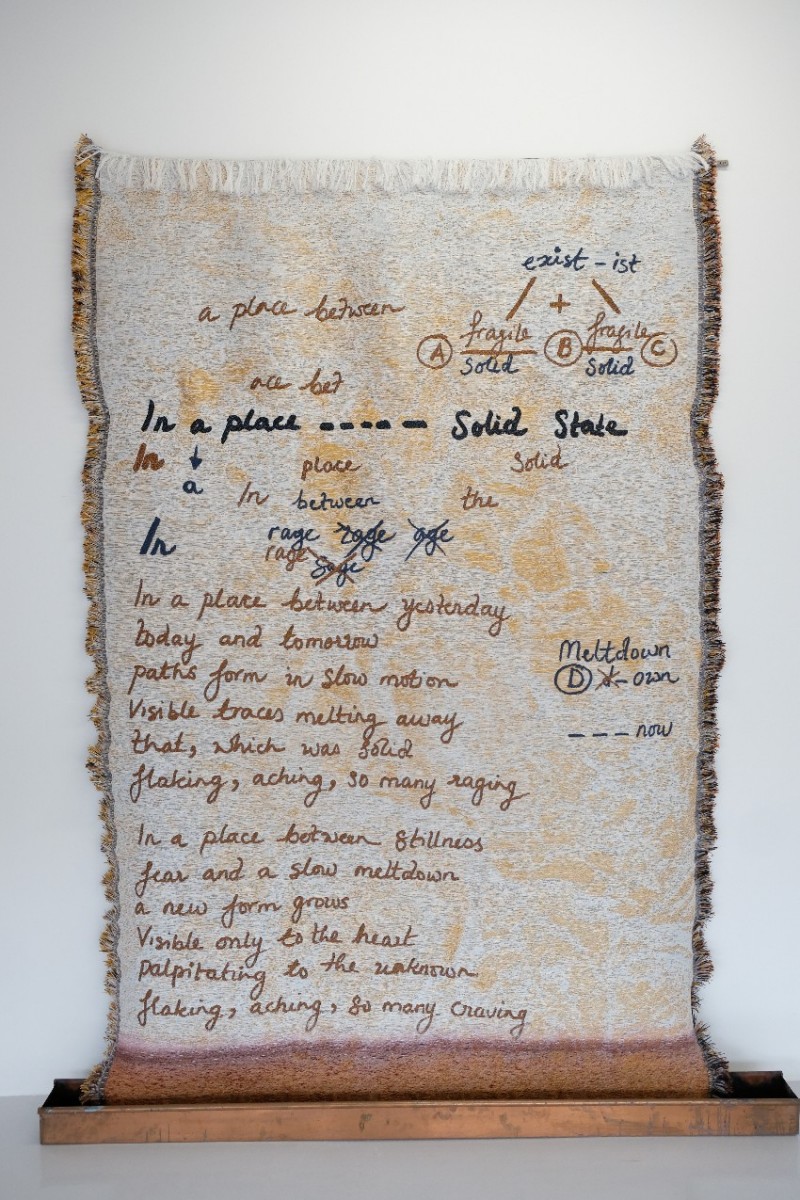 exist - ist
+
a place between
fragile fragile
A B C
Solid Solid
ace bet
In a place ----- Solid State
In place Solid
a In between the
In rage rage age
rage Sage
In a place between yesterday
today and tomorrow
paths form in slow motion
Visible traces melting away
that, which was solid
flaking, aching, so many raging
Meltdown
D d - own
--- now
In a place between Stillness
fear and a slow meltdown
a new form grows
Visible only to the heart
palpitating to the unknown
flaking, aching, so many craving